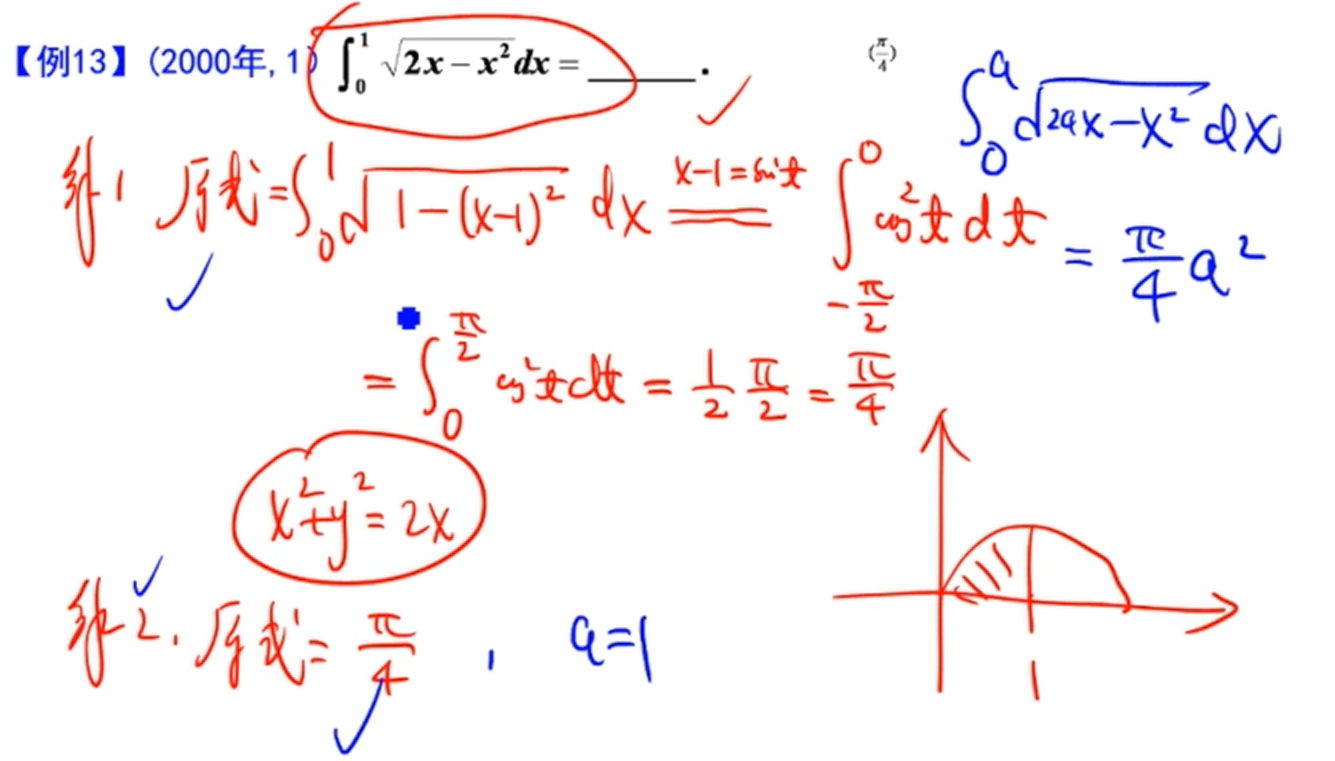 【例13】(2000年, 1) ∫₀¹ √(2x − x²) dx = ______. (π/4)
∫₀ᵃ √(2ax − x²) dx
解1 原式 = ∫₀¹ √(1 − (x−1)²) dx x−1 = sin t ∫_{-π/2}^0 cos² t dt
= π/4 a²
= ∫₀^{π/2} cos² t dt = 1/2 π/2 = π/4
x² + y² = 2x
解2. 原式 = π/4 , a=1
1